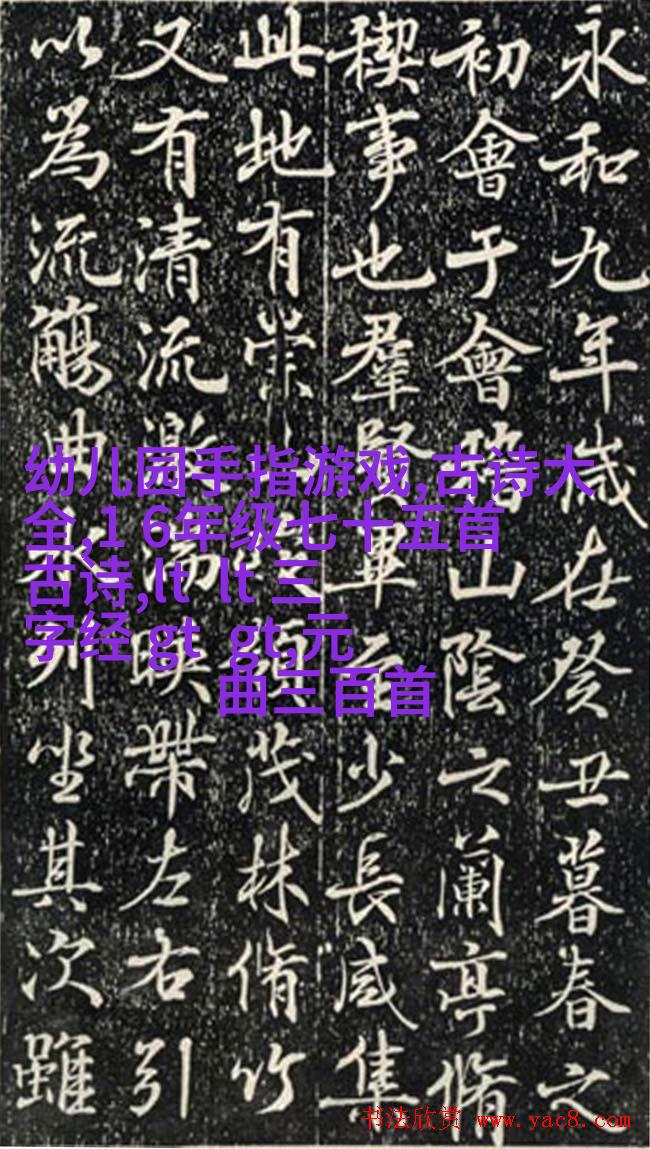 永和九年歲在癸丑暮春之
初會于會稽山陰之蘭亭脩
稧事也羣賢畢至少長咸集
此地有崇山峻領茂林脩竹
又有清流激湍暎帶左右引
以為流觴曲水列坐其次雖
幼儿园手指游戏,古诗大
全,1 6年级七十五首
古诗,lt lt 三
字经 gt gt,元
曲三百首
书法欣赏 www.yac8.com